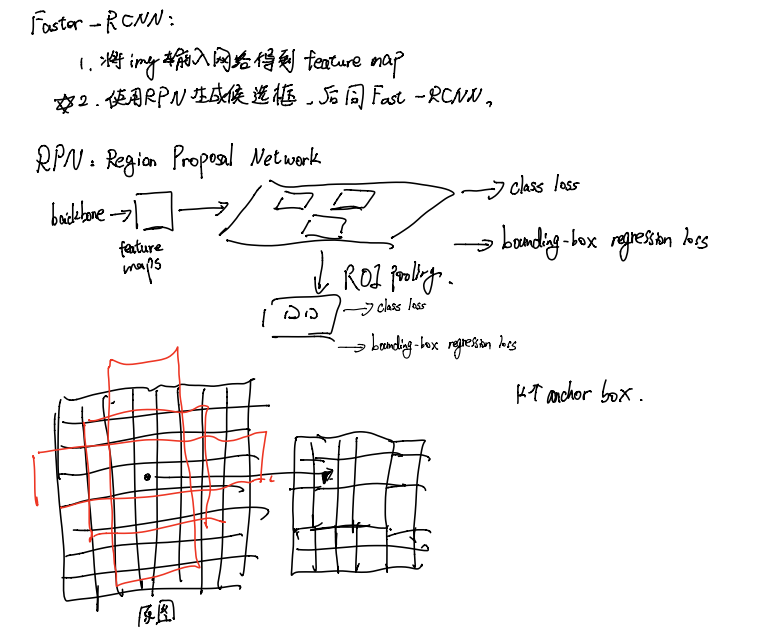 Faster-RCNN:
1. 将img输入网络得到 feature map
☆2. 使用RPN生成候选框、后同Fast-RCNN。
RPN: Region Proposal Network
backbone
feature maps
class loss
bounding-box regression loss
ROI pooling.
class loss
bounding-box regression loss
K个 anchor box.
原图